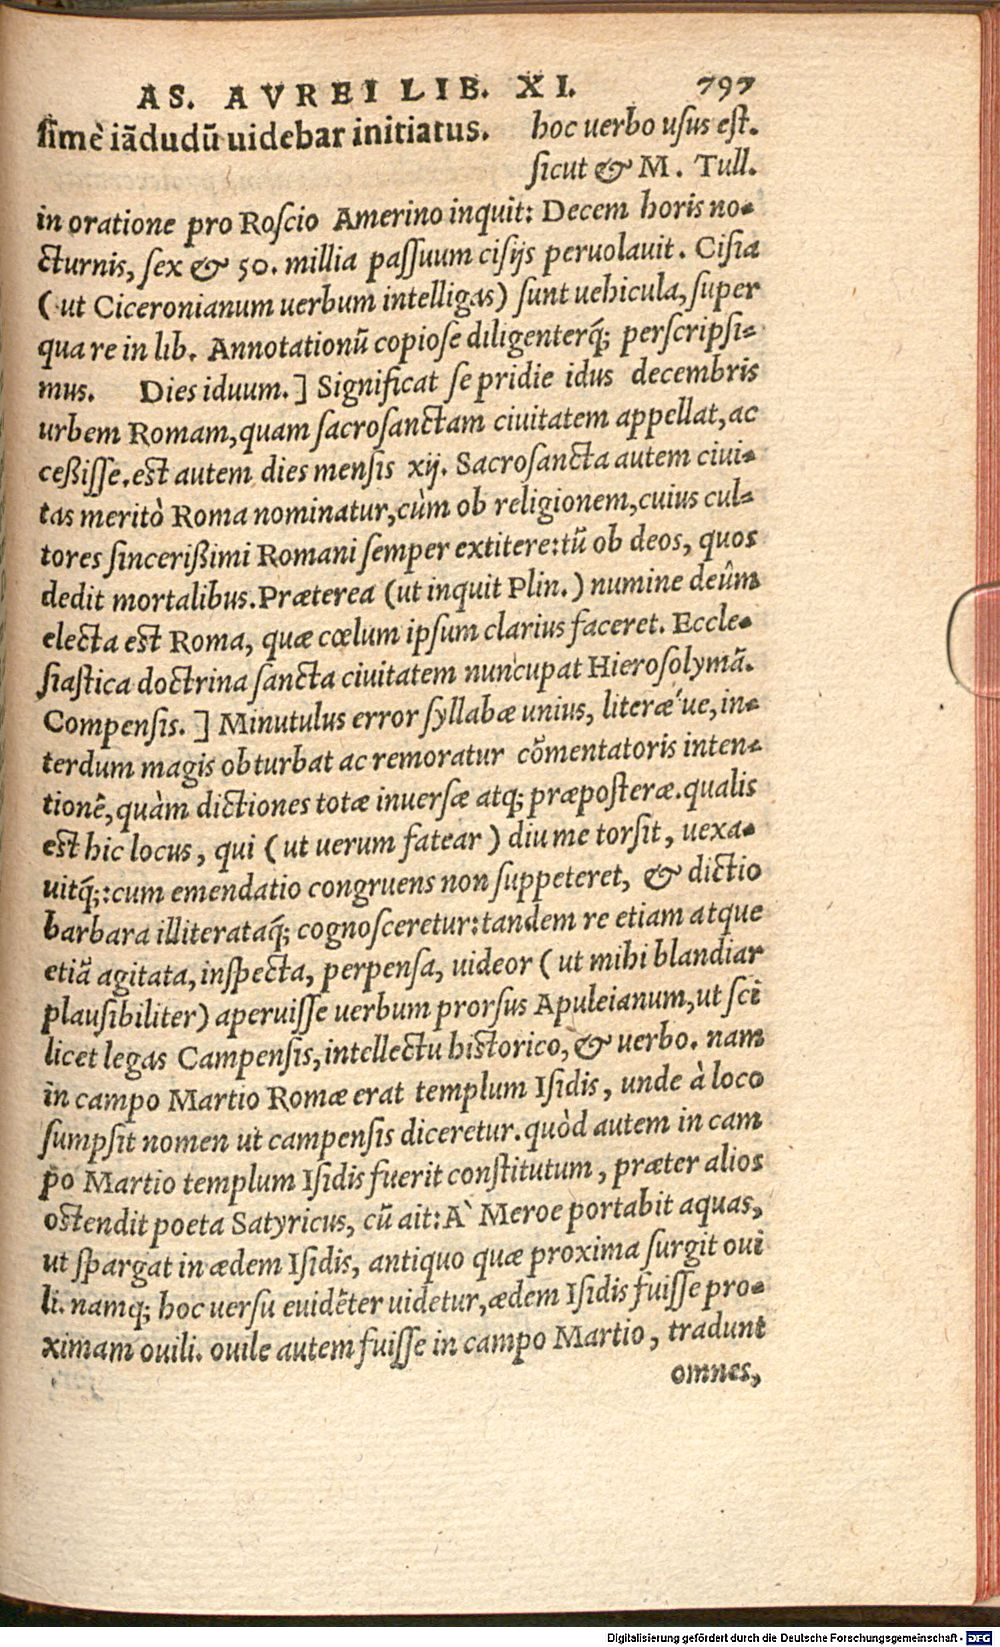 AS. AVREI LIB. XI. 797
ſimè iādudū uidebar initiatus.
hoc uerbo uſus eſt.
ſicut & M. Tull.
in oratione pro Roſcio Amerino inquit: Decem horis no-
cturnis, ſex & 50. millia paſſuum ciſijs peruolauit. Ciſia
(ut Ciceronianum uerbum intelligas) ſunt uehicula, ſuper
qua re in lib. Annotationū copioſe diligenterq́; perſcripſi-
mus. Dies iduum.] Significat ſe pridie idus decembris
urbem Romam, quam ſacroſanctam ciuitatem appellat, ac
ceßiſſe. eſt autem dies menſis xij. Sacroſancta autem ciui-
tas meritò Roma nominatur, cùm ob religionem, cuius cul-
tores ſincerißimi Romani ſemper extitere: tū ob deos, quos
dedit mortalibus. Præterea (ut inquit Plin.) numine deûm
electa eſt Roma, quæ cœlum ipſum clarius faceret. Eccle-
ſiaſtica doctrina ſancta ciuitatem nuncupat Hieroſolymā.
Compenſis.] Minutulus error ſyllabæ unius, literæ´ue, in-
terdum magis obturbat ac remoratur cōmentatoris inten-
tionē, quàm dictiones totæ inuerſæ atq; præpoſteræ. qualis
eſt hic locus, qui (ut uerum fatear) diu me torſit, uexa-
uitq́;: cum emendatio congruens non ſuppeteret, & dictio
barbara illiterataq́; cognoſceretur: tandem re etiam atque
etiā agitata, inſpecta, perpenſa, uideor (ut mihi blandiar
plauſibiliter) aperuiſſe uerbum prorſus Apuleianum, ut ſci
licet legas Campenſis, intellectu hiſtorico, & uerbo. nam
in campo Martio Romæ erat templum Iſidis, unde à loco
ſumpſit nomen ut campenſis diceretur. quòd autem in cam
po Martio templum Iſidis fuerit conſtitutum, præter alios
oſtendit poeta Satyricus, cū ait: A` Meroe portabit aquas,
ut ſpargat in ædem Iſidis, antiquo quæ proxima ſurgit oui
li. namq; hoc uerſu euidēter uidetur, ædem Iſidis fuiſſe pro-
ximam ouili. ouile autem fuiſſe in campo Martio, tradunt
omnes,
Digitalisierung gefördert durch die Deutsche Forschungsgemeinschaft - DFG